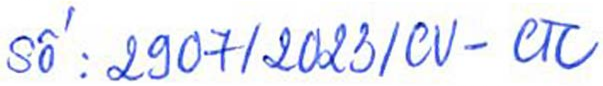 Số: 2907/2023/CV - CTC